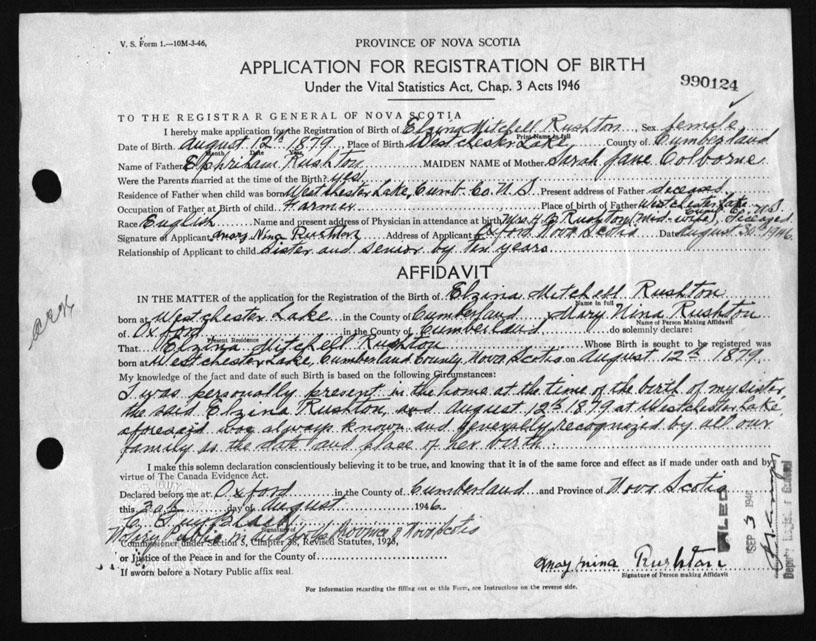 V. S. Form 1.—10M-3-46.
PROVINCE OF NOVA SCOTIA
APPLICATION FOR REGISTRATION OF BIRTH
Under the Vital Statistics Act, Chap. 3 Acts 1946
990124
TO THE REGISTRAR GENERAL OF NOVA SCOTIA
I hereby make application for the Registration of Birth of Elzina Mitchell Rushton, Sex female
Print Name in full
Date of Birth August 12th 1879, Place of Birth Westchester Lake, County of Cumberland
Month Date Year
Name of Father Ephriham Rushton MAIDEN NAME of Mother Sarah Jane Colborne
Were the Parents married at the time of the Birth? yes
Residence of Father when child was born Westchester Lake, Cumb. Co. N.S. Present address of Father deceased
Occupation of Father at Birth of child Farmer Place of birth of Father Westchester Lake
Race English Name and present address of Physician in attendance at birth Mrs. Rushton (Mid-wife) deceased
Signature of Applicant Mary Nina Rushton Address of Applicant Oxford Nova Scotia Date August 30th 1946.
Relationship of Applicant to child Sister and senior by ten years
AFFIDAVIT
IN THE MATTER of the application for the Registration of Birth of Elzina Mitchell Rushton
Name in full
born at Westchester Lake in the County of Cumberland, Mary Nina Rushton
Name of Person Making Affidavit
of Oxford in the County of Cumberland do solemnly declare:
Present Residence
That Elzina Mitchell Rushton Whose Birth is sought to be registered was
born at Westchester Lake, Cumberland County, Nova Scotia on August 12th 1879
My knowledge of the fact and date of such Birth is based on the following Circumstances:
I was personally present in the home at the time of the birth of my sister,
the said Elzina Rushton, and August 12th 1879 at Westchester Lake
aforesaid was always known and generally recognized by all our
family as the date and place of her birth.
I make this solemn declaration conscientiously believing it to be true, and knowing that it is of the same force and effect as if made under oath and by
virtue of The Canada Evidence Act.
Declared before me at Oxford in the County of Cumberland and Province of Nova Scotia
this 30th day of August 1946.
Signature of
Notary Public in and for the Province of Nova Scotia
Commissioner under Section 5, Chapter 38, Revised Statutes, 1923,
or Justice of the Peace in and for the County of
If sworn before a Notary Public affix seal.
Mary Nina Rushton
Signature of Person making Affidavit
FILED
SEP 3 1946
Deputy Registrar General
For Information regarding the filling out of this Form, see Instructions on the reverse side.